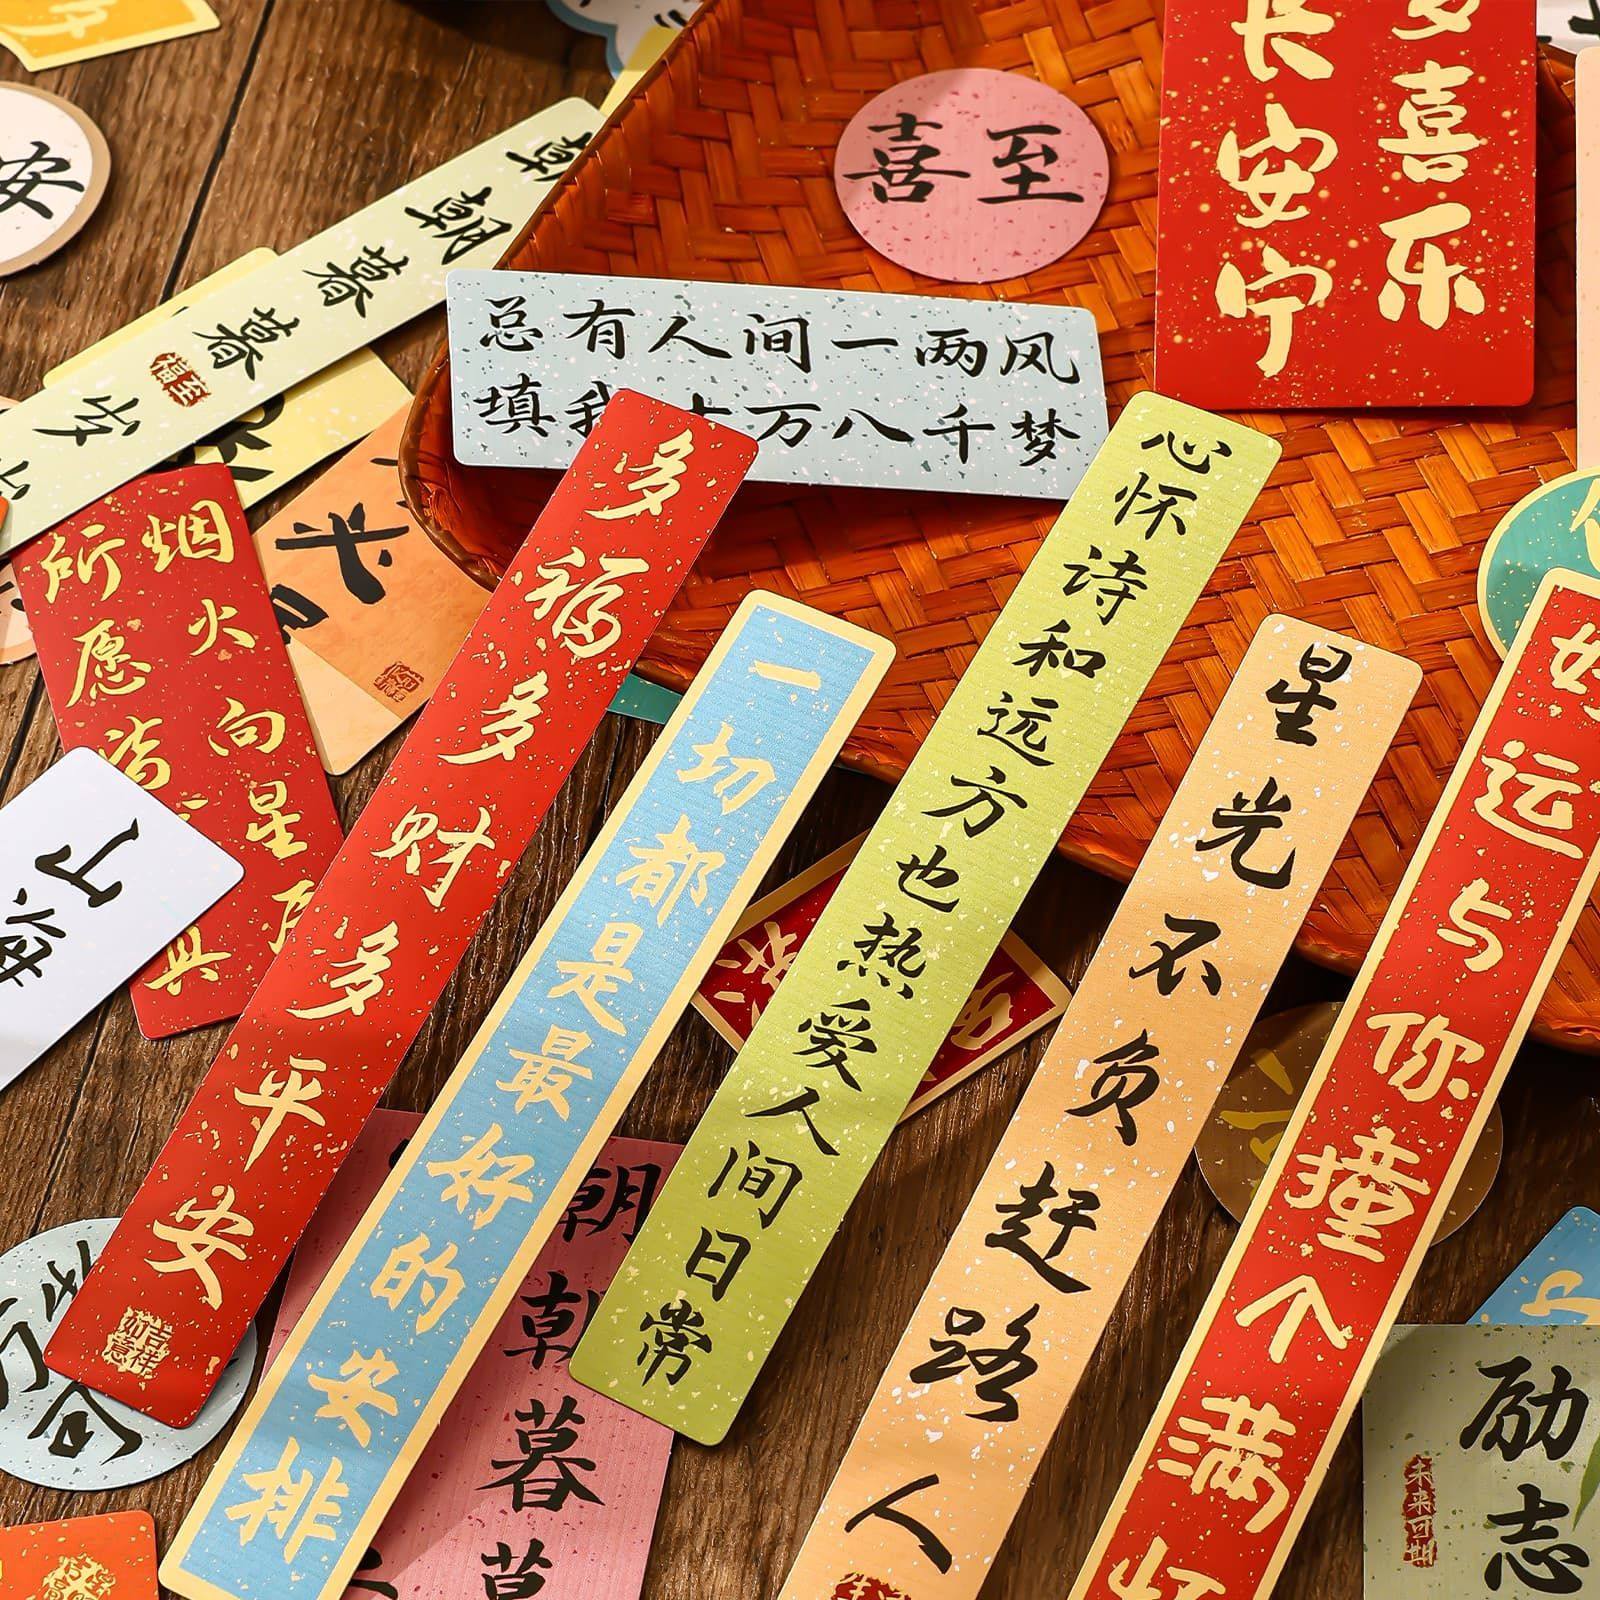 安
朝朝暮暮
岁岁
喜至
长安宁
喜乐
总有人间一两风
填我十万八千梦
烟火向星辰
所愿皆成真
山海
多福多多财多平安
吉祥
如意
一切都是最好的安排
心怀诗和远方也热爱人间日常
星光不负赶路人
好运与你撞个满怀
朝朝暮暮
励志
未来可期